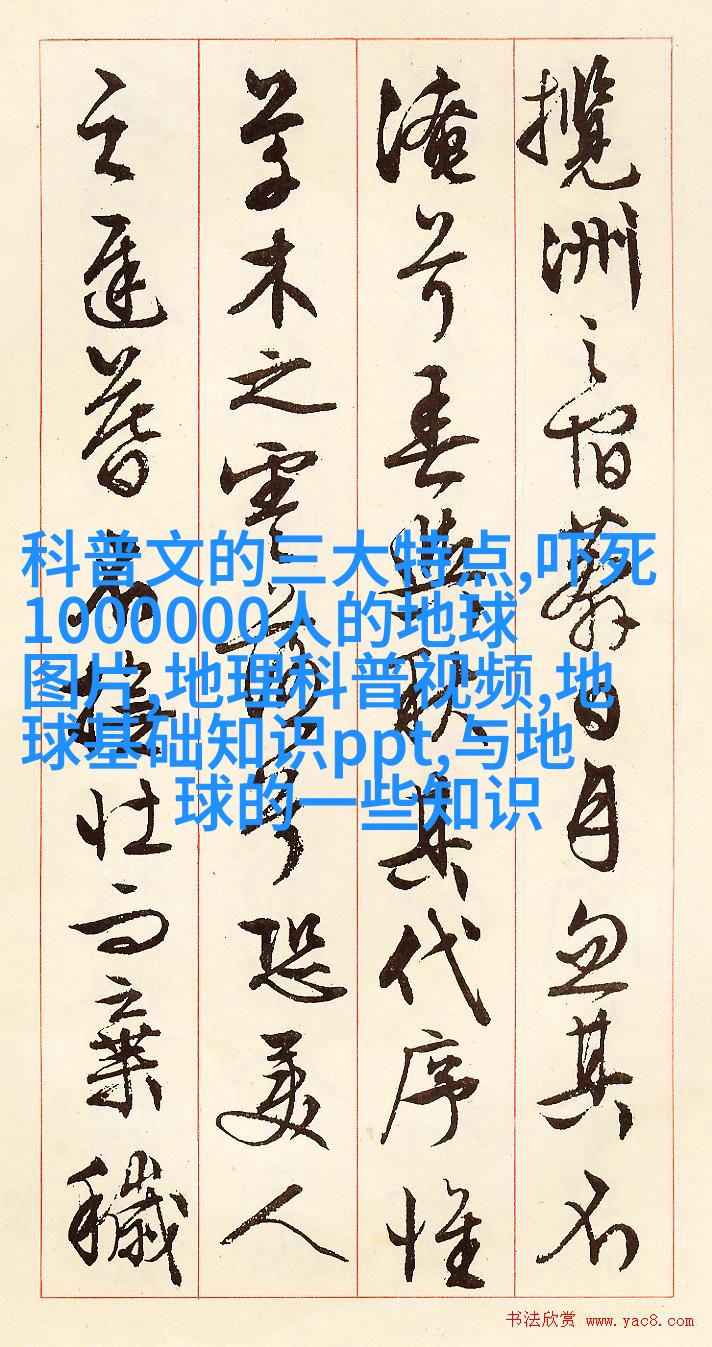 攬洲之宿莽日月忽其不
淹兮春與秋其代序惟
草木之零落兮恐美人
之遲暮壯而棄穢
科普文的三大特点,吓死
1000000人的地球
图片,地理科普视频,地
球基础知识ppt,与地
球的一些知识
书法欣赏 www.yac8.com